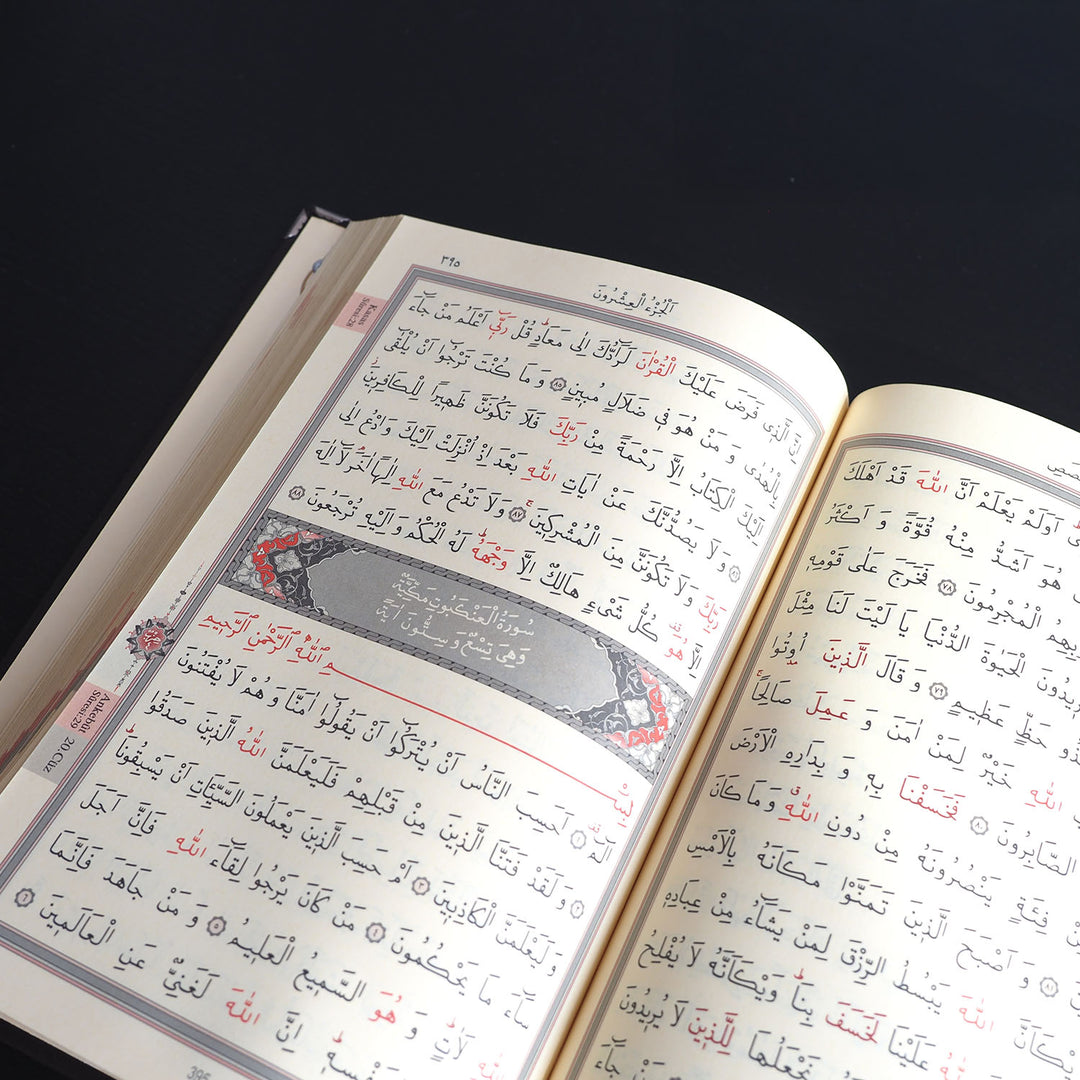 اَوَلَمْ يَعْلَمْ اَنَّ اللّٰهَ قَدْ اَهْلَكَ
هُوَ اَشَدُّ مِنْهُ قُوَّةً وَاَكْثَرُ
الْمُجْرِمُونَ ﴿٧٨﴾ فَخَرَجَ عَلٰى قَوْمِهِ
الْحَيٰوةَ الدُّنْيَا يَا لَيْتَ لَنَا مِثْلَ
حَظٍّ عَظِيمٍ ﴿٧٩﴾ وَقَالَ الَّذِينَ اُوتُوا
اللّٰهِ خَيْرٌ لِمَنْ اٰمَنَ وَعَمِلَ صَالِحًا
الصَّابِرُونَ ﴿٨٠﴾ فَخَسَفْنَا بِهِ وَبِدَارِهِ الْاَرْضَ
فِئَةٍ يَنْصُرُونَهُ مِنْ دُونِ اللّٰهِ وَمَا كَانَ
﴿٨١﴾ وَاَصْبَحَ الَّذِينَ تَمَنَّوْا مَكَانَهُ بِالْاَمْسِ
اللّٰهَ يَبْسُطُ الرِّزْقَ لِمَنْ يَشَٓاءُ مِنْ عِبَادِهِ
عَلَيْنَا لَخَسَفَ بِنَا وَيْكَاَنَّهُ لَا يُفْلِحُ
نَجْعَلُهَا لِلَّذِينَ لَا يُرِيدُونَ
٣٩٥
اَلْجُزْءُ الْعِشْرُونَ
Kasas
Sûresi-28
اِنَّ الَّذِي فَرَضَ عَلَيْكَ الْقُرْاٰنَ لَرَٓادُّكَ اِلٰى مَعَادٍ قُلْ رَبِّٓي اَعْلَمُ مَنْ جَٓاءَ
بِالْهُدٰى وَمَنْ هُوَ فِي ضَلَالٍ مُبِينٍ ﴿٨٥﴾ وَمَا كُنْتَ تَرْجُٓوا اَنْ يُلْقٰٓى
اِلَيْكَ الْكِتَابُ اِلَّا رَحْمَةً مِنْ رَبِّكَ فَلَا تَكُونَنَّ ظَهِيرًا لِلْكَافِرِينَ
﴿٨٦﴾ وَلَا يَصُدُّنَّكَ عَنْ اٰيَاتِ اللّٰهِ بَعْدَ اِذْ اُنْزِلَتْ اِلَيْكَ وَادْعُ اِلٰى
رَبِّكَ وَلَا تَكُونَنَّ مِنَ الْمُشْرِكِينَ ﴿٨٧﴾ وَلَا تَدْعُ مَعَ اللّٰهِ اِلٰهًا اٰخَرَ لَٓا اِلٰهَ
اِلَّا هُوَ كُلُّ شَيْءٍ هَالِكٌ اِلَّا وَجْهَهُ لَهُ الْحُكْمُ وَاِلَيْهِ تُرْجَعُونَ ﴿٨٨﴾
سُورَةُ الْعَنْكَبُوتِ مَكِّيَّةٌ
وَهِيَ تِسْعٌ وَسِتُّونَ اٰيَةً
بِسْمِ اللّٰهِ الرَّحْمٰنِ الرَّحِيمِ
Ankebût
Sûresi-29
20.Cüz
الٓمٓ ﴿١﴾ اَحَسِبَ النَّاسُ اَنْ يُتْرَكُٓوا اَنْ يَقُولُٓوا اٰمَنَّا وَهُمْ لَا يُفْتَنُونَ
﴿٢﴾ وَلَقَدْ فَتَنَّا الَّذِينَ مِنْ قَبْلِهِمْ فَلَيَعْلَمَنَّ اللّٰهُ الَّذِينَ صَدَقُوا
وَلَيَعْلَمَنَّ الْكَاذِبِينَ ﴿٣﴾ اَمْ حَسِبَ الَّذِينَ يَعْمَلُونَ السَّيِّـَٔاتِ اَنْ يَسْبِقُونَا
سَٓاءَ مَا يَحْكُمُونَ ﴿٤﴾ مَنْ كَانَ يَرْجُوا لِقَٓاءَ اللّٰهِ فَاِنَّ اَجَلَ
اللّٰهِ لَاٰتٍ وَهُوَ السَّمِيعُ الْعَلِيمُ ﴿٥﴾ وَمَنْ جَاهَدَ فَاِنَّمَا
لِنَفْسِهِ اِنَّ اللّٰهَ لَغَنِيٌّ عَنِ الْعَالَمِينَ ﴿٦﴾
395